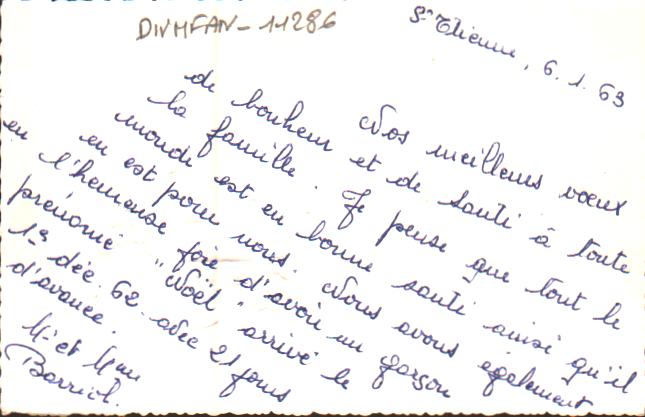 DIVMFAN - 11286
St Etienne, 6.1.63
Nos meilleurs voeux
de bonheur et de santé à toute
la famille. Je pense que tout le
monde est en bonne santé ainsi qu'il
en est pour nous. Nous avons également
eu l'heureuse joie d'avoir un garçon
prénomé "Noël" arrivé le
1er déc. 62 avec 21 jours
d'avance.
Mr et Mme
Barriol.